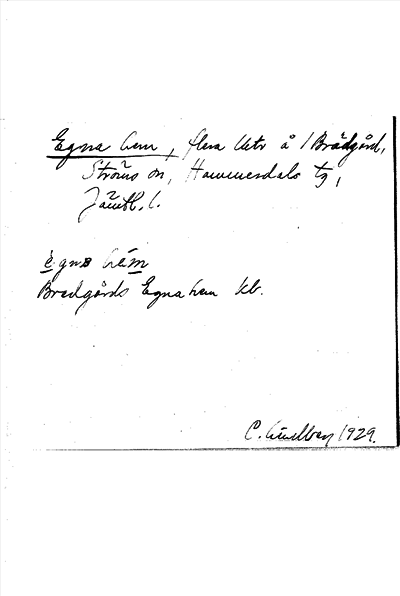 Egna hem, flera lktr å 1 Brådgård,
Ströms sn, Hammerdals tg,
Jämtl. l.
egna hem
Bredgårds Egnahem kb.
C. Lindberg 1929.